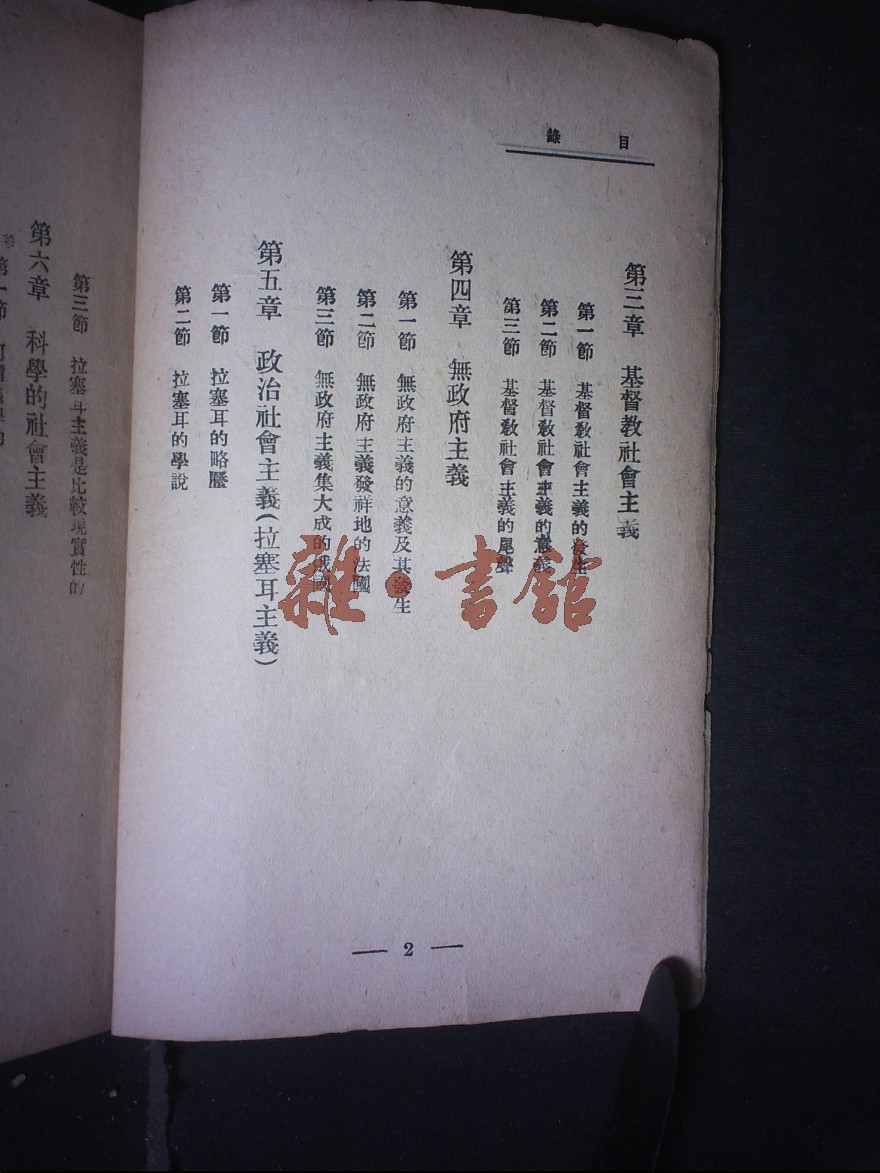 目錄
第三章 基督教社會主義
第一節 基督教社會主義的發生
第二節 基督教社會主義的意義
第三節 基督教社會主義的尾聲
第四章 無政府主義
第一節 無政府主義的意義及其發生
第二節 無政府主義發祥地的法國
第三節 無政府主義集大成的俄國
第五章 政治社會主義(拉塞耳主義)
第一節 拉塞耳的略歷
第二節 拉塞耳的學說
— 2 —
第三節 拉塞耳主義是比較現實性的
第六章 科學的社會主義
第一節
雜·書館